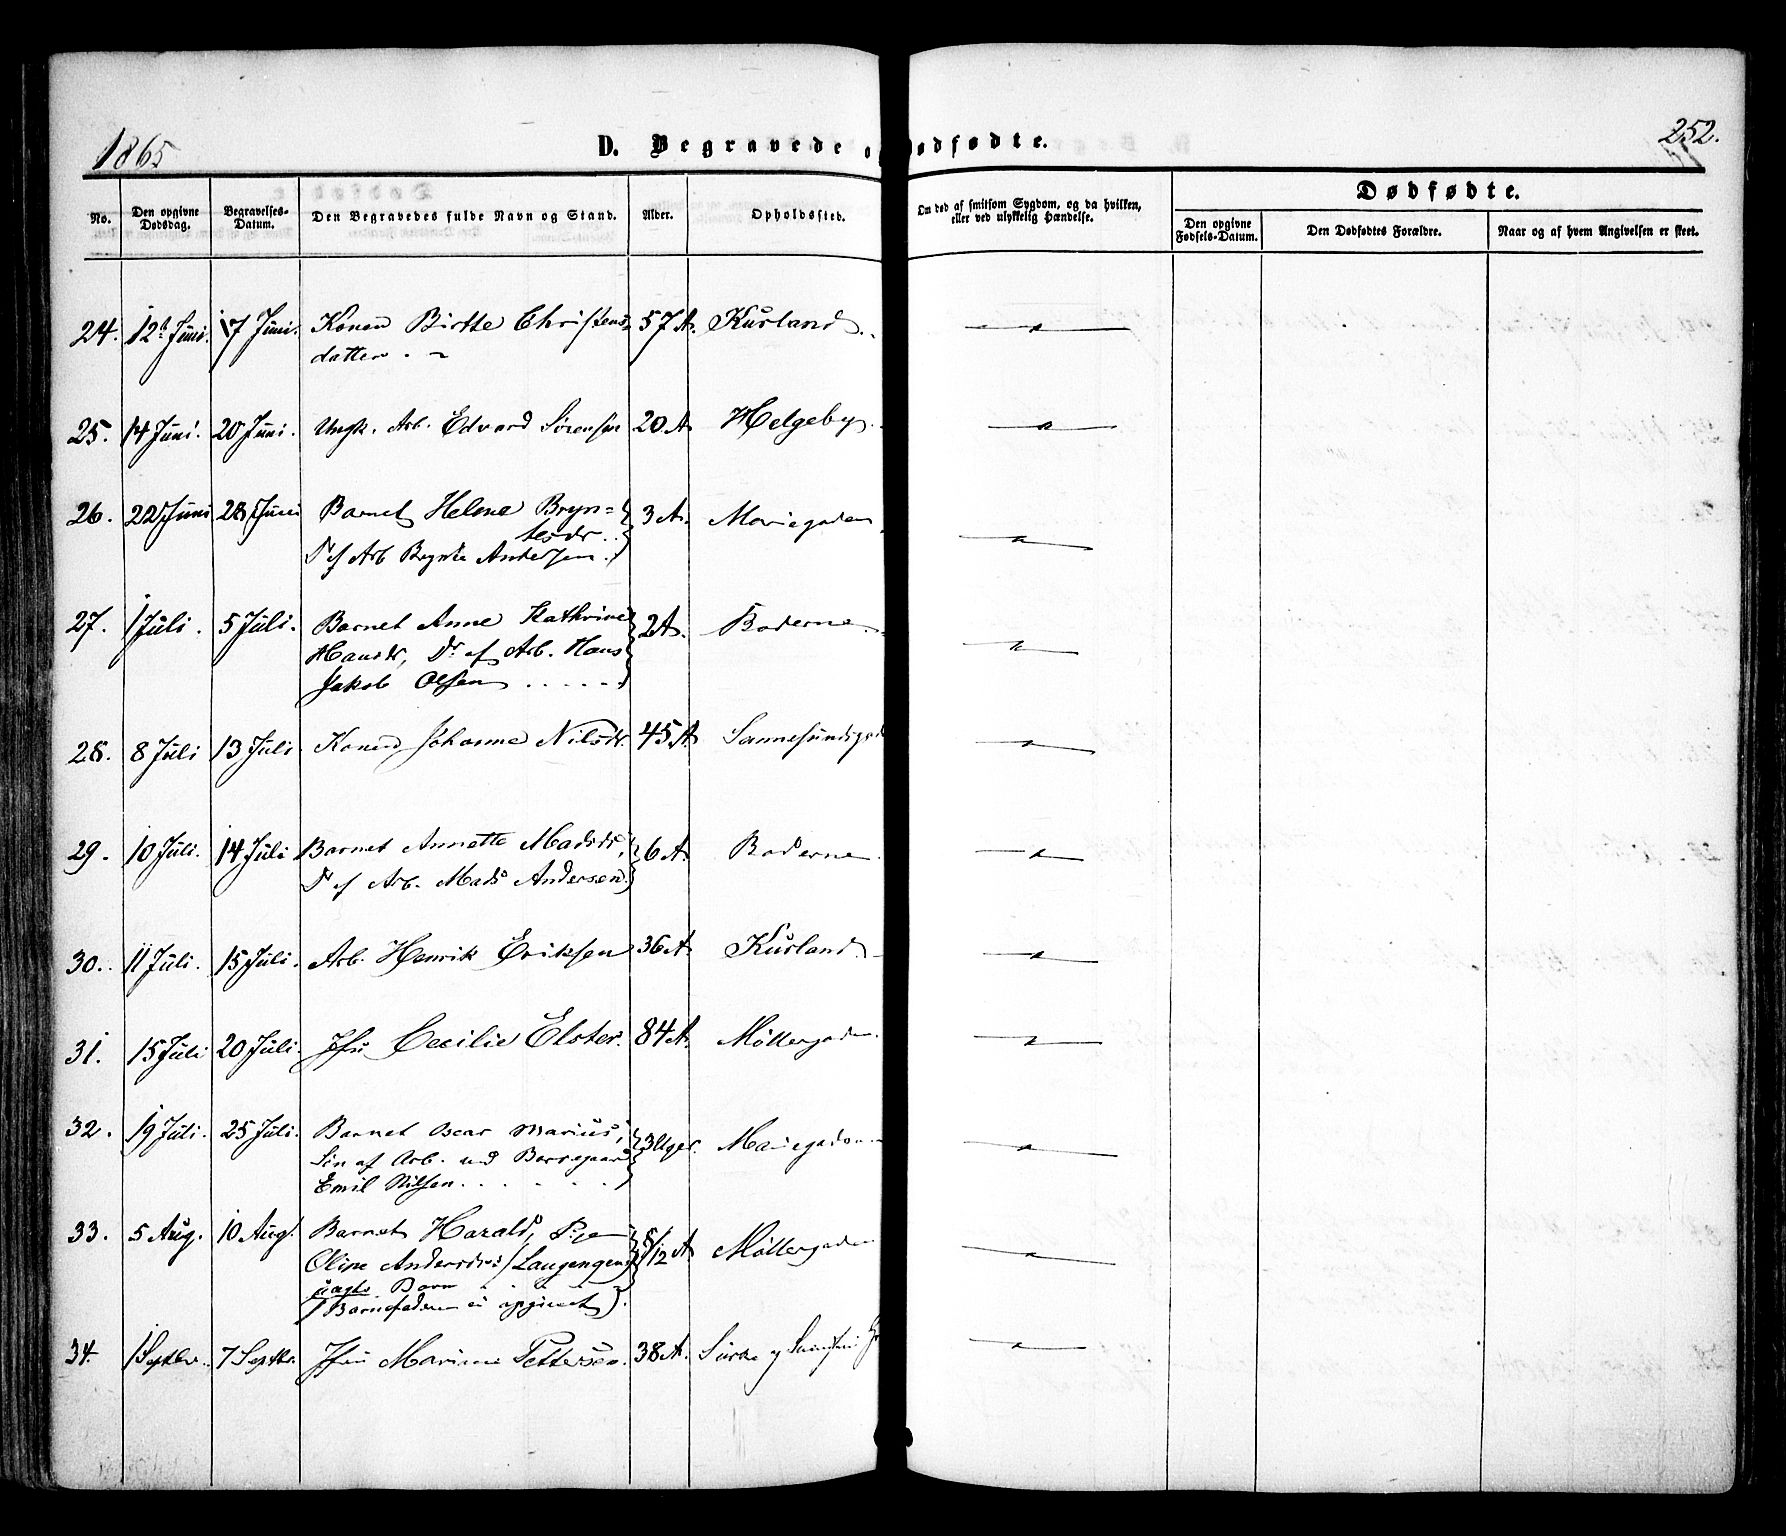 1865
D. Begravede o ødfødte.
252.
No.
Den opgivne Dødsdag.
Begravelses-Datum.
Den Begravedes fulde Navn og Stand.
Alder.
Opholdssted.
Om død af smitsom Sygdom, og da hvilken, eller ved ulykkelig Hændelse.
Dødfødte.
Den opgivne Fødsels-Datum.
Den Dødfødtes Forældre.
Naar og af hvem Angivelsen er skeet.
24. 12te Juni. 17 Juni. Konen Birthe Christens 57 A. Kurland.
datter.
25. 14 Juni. 20 Juni. Ungk. Arb. Edvard Sørensen 20 A Helgeby.
26. 22 Juni 28 Juni Barnet Helene Bryn= 3 A. Mariegaden
tesdr.
Dr. af Arb Brynte Andersen.
27. 1 Juli. 5 Juli. Barnet Anne Kathrine 2 A. Boderne.
Hansdr, Dr af Arb. Hans
Jakob Olsen . . . . .
28. 8 Juli 13 Juli Konen Johanne Nilsdr. 45 A. Sannesundsgad
29. 10 Juli. 14 Juli Barnet Annette Madsdr, 6 A. Boderne.
Dr af Arb. Mads Andersen.
30. 11 Juli. 15 Juli. Arb. Henrik Eriksen 36 A. Kurland
31. 15 Juli 20 Juli. Jfru Cecilie Elster. 84 A. Møllergaden.
32. 19 Juli. 25 Juli. Barnet Oscar Marius, 3 Uger. Mariegaden
Søn af Arb. ved Borregaard
Emil Nilsen . . . . .
33. 5 Aug. 10 Aug. Barnet Harald, Pige 8/12 A Møllergaden
Oline Andersdrs (Laugengen)
uægte Barn
(Barnefaderen ei opgivet).
34. 1 Septbr. 7 Septbr. Jfru Marine Pettersen. 38 A.